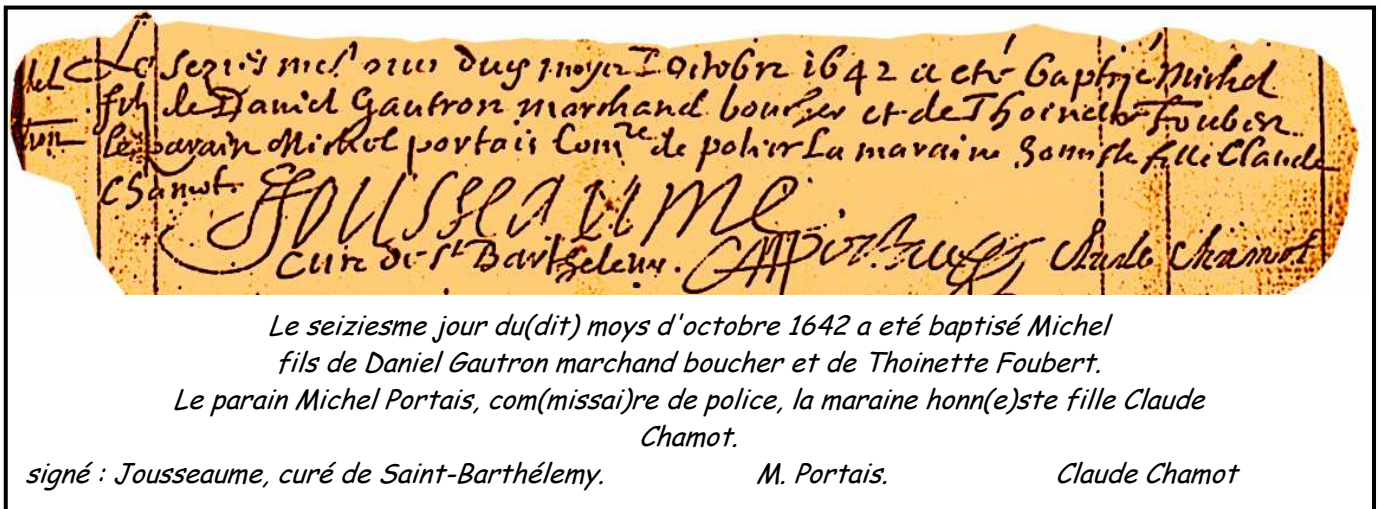 Le seziesme jour du moys d'Octobre 1642 a eté baptisé Michel
fils de Daniel Gautron marchand boucher et de Thoinette Foubert.
Le parain Michel portais Com.re de police La maraine honneste fille Claude
Chamot.
Jousseaume
Curé de St Barthelemy. MPortais Claude Chamot
Le seiziesme jour du(dit) moys d'octobre 1642 a eté baptisé Michel
fils de Daniel Gautron marchand boucher et de Thoinette Foubert.
Le parain Michel Portais, com(missai)re de police, la maraine honn(e)ste fille Claude
Chamot.
signé : Jousseaume, curé de Saint-Barthélemy. M. Portais. Claude Chamot